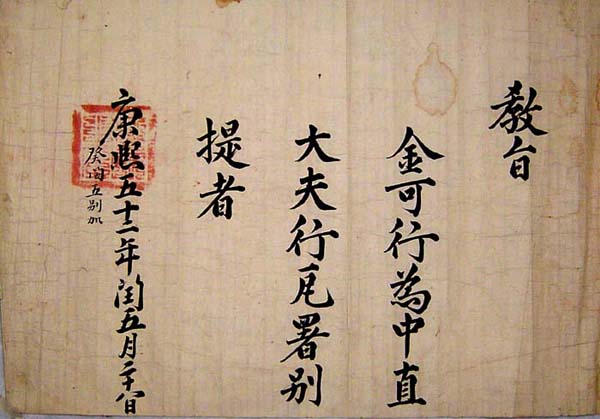 教旨
金可行為中直
大夫行瓦署別
提者
康熙五十二年閏五月二十八日
癸五別加